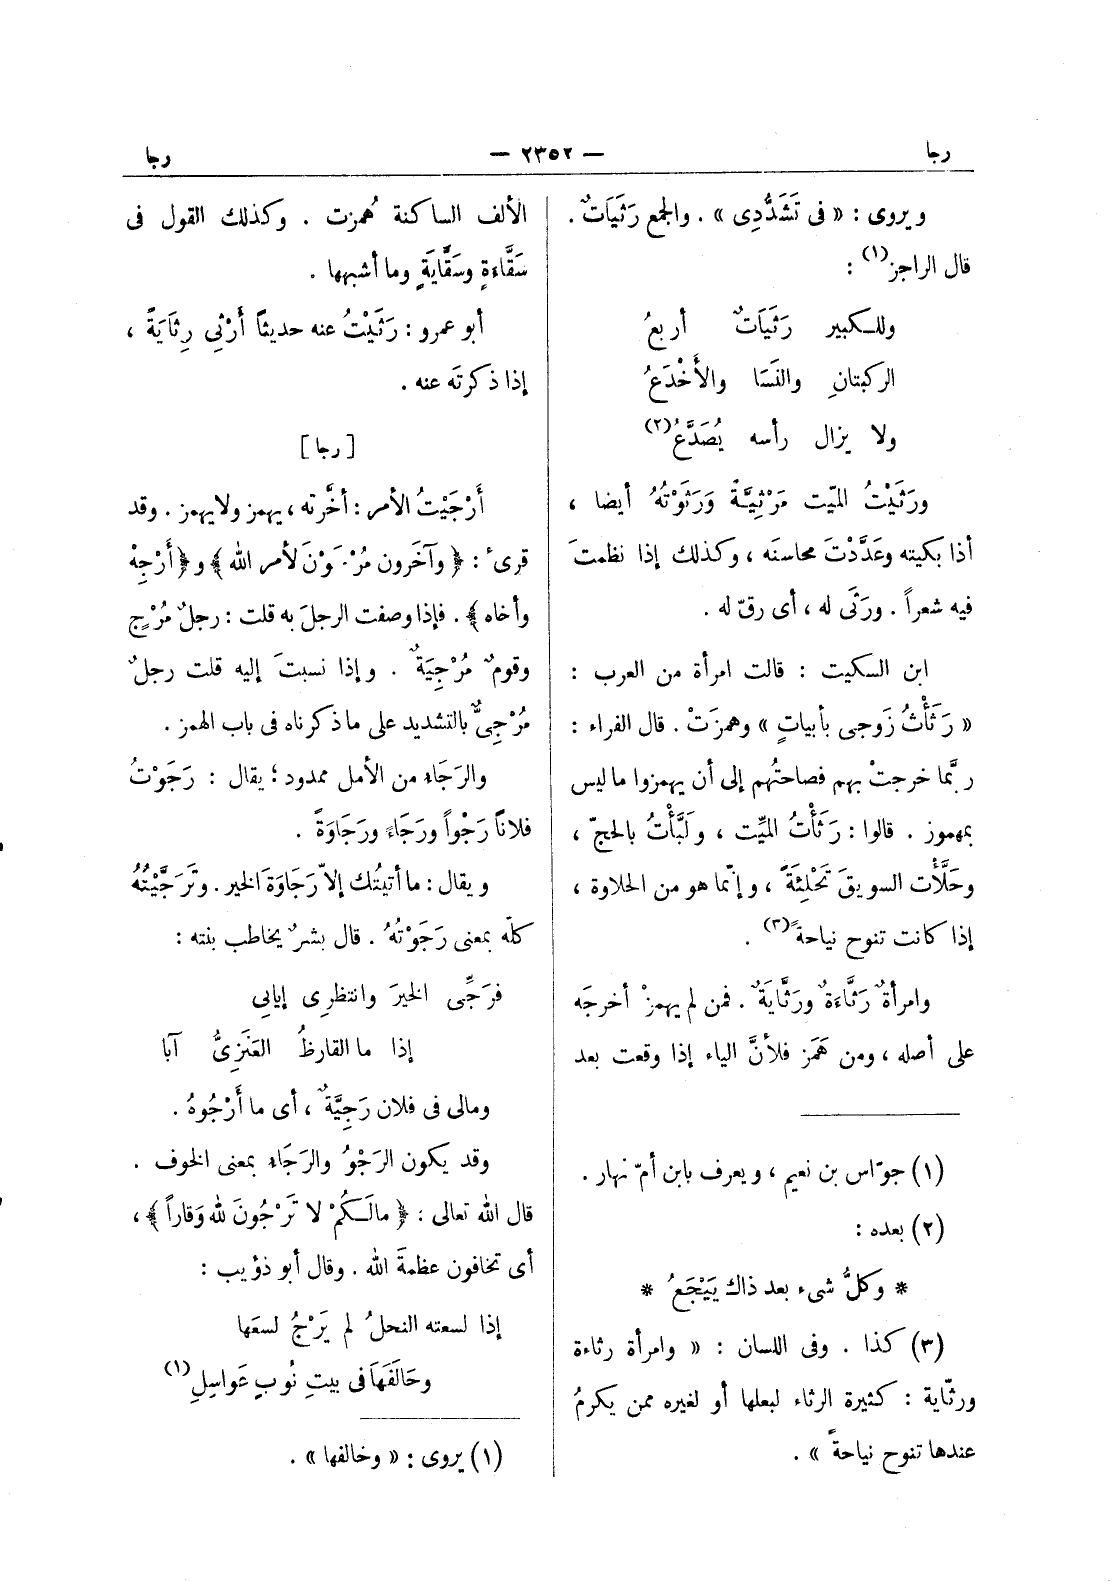 رجا — ٢٣٥٢ — رجا
ويروى : « فى تَشَدُّدِى » . والجمع رَثَيَاتٌ .
قال الراجز(١) :
وللـكبير رَثَيَاتٌ أربعُ
الركبتانِ والنَسَا والأَخْدَعُ
ولا يزال رأسه يُصَدَّعُ(٢)
ورَثَيْتُ الميّت مَرْثِيَـةً وَرَثَوْتُهُ أيضا ،
أذا بكيته وعَدَّدْتَ محاسنَه ، وكذلك إذا نظمتَ
فيه شعراً . ورَثَى له ، أى رقّ له .
ابن السكيت : قالت امرأة من العرب :
« رَثَأْتُ زَوجى بأبياتٍ » وهمزَتْ . قال الفراء :
ربَّما خرجتْ بهم فصاحتُهم إلى أن يهمزوا ما ليس
بمهموز . قالوا : رَثَأْتُ الميِّت ، ولَبَّأْتُ بالحجّ ،
وحَلَّأْت السويقَ تَحْلِئَةً ، وإنّما هو من الحلاوة ،
إذا كانت تنوح نياحةً(٣) .
وامرأةٌ رَثَّاءَةٌ ورَثَّايَةٌ . فمن لم يهمزْ أخرجَه
على أصله ، ومن هَمَز فلأنَّ الياء إذا وقعت بعد
(١) جوّاس بن نعيم ، ويعرف بابن أمّ نهار .
(٢) بعده :
* وكلُّ شىء بعد ذاك يَيْجَعُ *
(٣) كذا . وفى اللسان : « وامرأة رثاءة
ورثّاية : كثيرة الرثاء لبعلها أو لغيره ممن يكرمُ
عندها تنوح نياحةً » .
الألف الساكنة هُمزت . وكذلك القول فى
سَقَّاءَةٍ وسَقَّايَةٍ وما أشبهها .
أبو عمرو : رَثَيْتُ عنه حديثاً أَرْثِي رِثَايَةً ،
إذا ذكرتَه عنه .
[ رجا ]
أَرْجَيْتُ الأمر : أخَّرته ، يهمز ولايهمز . وقد
قرىُ : ﴿ وآخَرون مُرْجَوْنَ لأمر الله ﴾ و﴿ أَرْجِهْ
وأخاه ﴾ . فإذا وصفت الرجلَ به قلت : رجلٌ مُرْجٍ
وقومٌ مُرْجِيَةٌ . وإذا نسبتَ إليه قلت رجلٌ
مُرْجِىٌّ بالتشديد على ما ذكرناه فى باب الهمز .
والرَجَاء من الأمل ممدود ؛ يقال : رَجَوْتُ
فلاناً رَجْواً ورَجَاءً ورَجَاوَةً .
ويقال : ما أتيتُك إلاّ رَجَاوَةَ الخير . وتَرَجَّيْتُهُ
كلّه بمعنى رَجَوْتُهُ . قال بشرٌ يخاطب بنته :
فرَجِّى الخيرَ وانتظرِى إيابِي
إذا ما القارظُ العَنَزِىُّ آبا
ومالى فى فلان رَجِيَّةٌ ، أى ما أَرْجُوهُ .
وقد يكون الرَجْوُ والرَجَاء بمعنى الخوف .
قال الله تعالى : ﴿ مالَـكُمْ لا تَرْجُونَ لله وَقاراً ﴾ ،
أى تخافون عظمةَ الله . وقال أبو ذؤيب :
إذا لسعته النحلُ لم يَرْجُ لسعَها
وحَالَفَهَا فى بيتِ نُوبٍ عَواسِلِ(١)
(١) يروى : « وخالفها » .